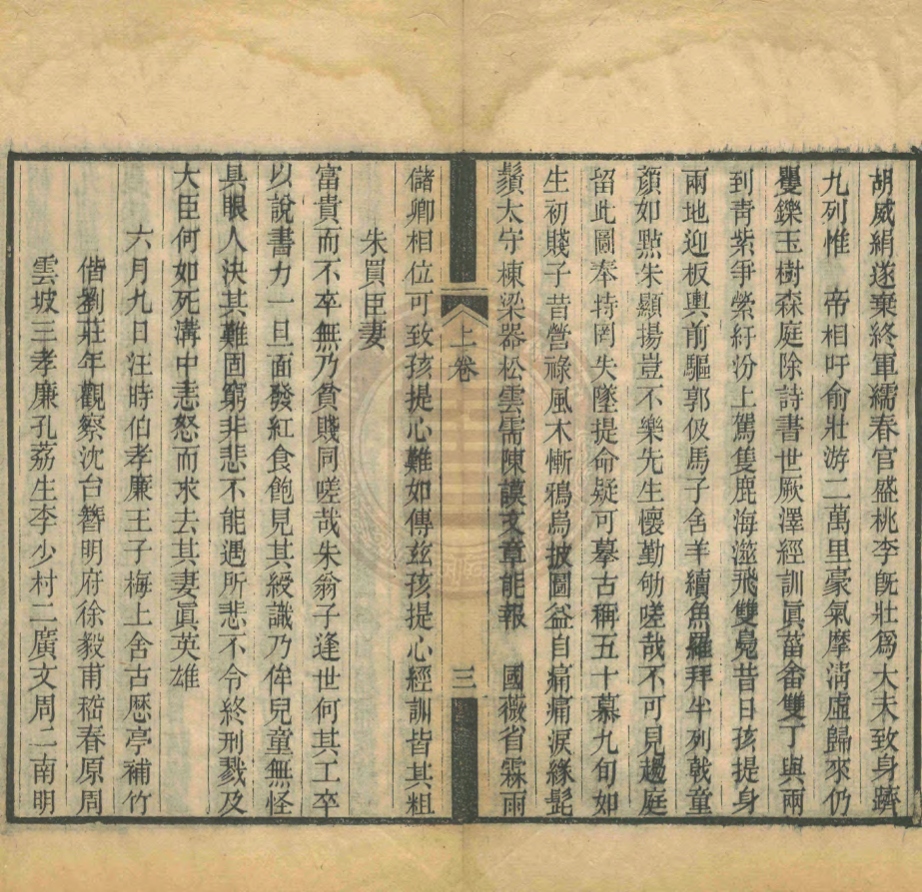 胡威絹遂棄終軍繻春官盛桃李旣壯爲大夫致身躋
九列惟　帝相吁俞壯游二萬里豪氣摩淸虛歸來仍
矍鑠玉樹森庭除詩書世厥澤經訓眞菑畬雙丁與兩
到靑紫爭縈紆汾上駕隻鹿海澨飛雙鳧昔日孩提身
兩地迎板輿前驅郭伋馬子舍羊續魚羅拜半列戟童
顏如點朱顯揚豈不樂先生懷勤劬嗟哉不可見趨庭
留此圖奉持罔失墜提命疑可摹古稱五十慕九旬如
生初賤子昔營祿風木慚鴉烏披圖益自痛痛淚緣髭
鬚太守棟梁器松雲需陳謨文章能報　國薇省霖雨
上卷
三
儲卿相位可致孩提心難如傳茲孩提心經訓皆其粗
朱買臣妻
富貴而不卒無乃貧賤同嗟哉朱翁子逢世何其工卒
以說書力一旦面發紅食飽見其綬識乃侔兒童無怪
具眼人決其難固窮非悲不能遇所悲不令終刑戮及
大臣何如死溝中恚怒而求去其妻眞英雄
六月九日汪時伯孝廉王子梅上舍古歷亭補竹
偕劉莊年觀察沈台簪明府徐毅甫嵇春原周
雲坡三孝廉孔荔生李少村二廣文周二南明